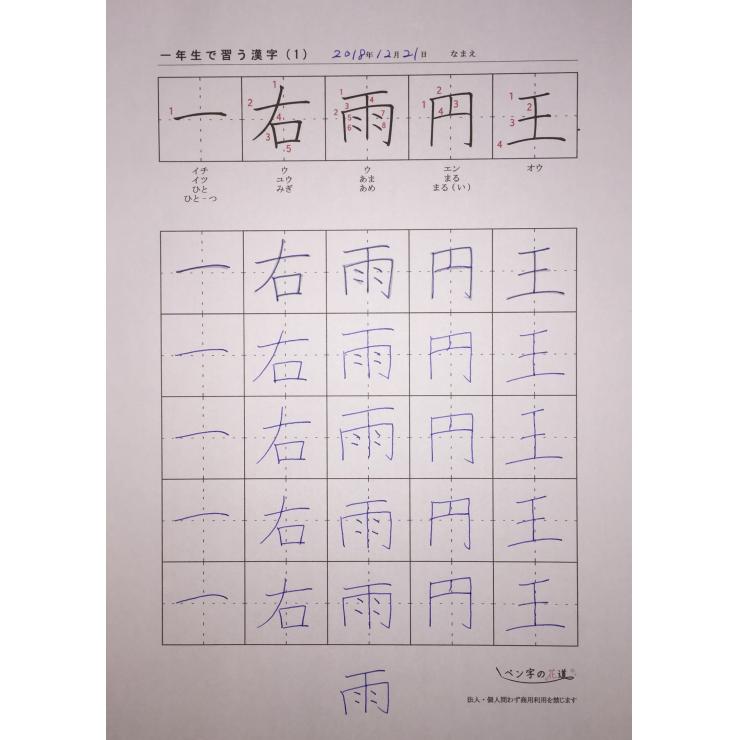 一年生で習う漢字（1） 2018年12月21日 なまえ
一 右 雨 円 王
1 1 2 3 4 5 1 2 3 4 5 6 7 8 1 2 3 4 1 2 3 4
イチ ウ ウ エン オウ
イツ ユウ あま まる
ひと みぎ あめ まる（い）
ひと－つ
一 右 雨 円 王
一 右 雨 円 王
一 右 雨 円 王
一 右 雨 円 王
一 右 雨 円 王
雨
ペン字の花道
法人・個人問わず商用利用を禁じます